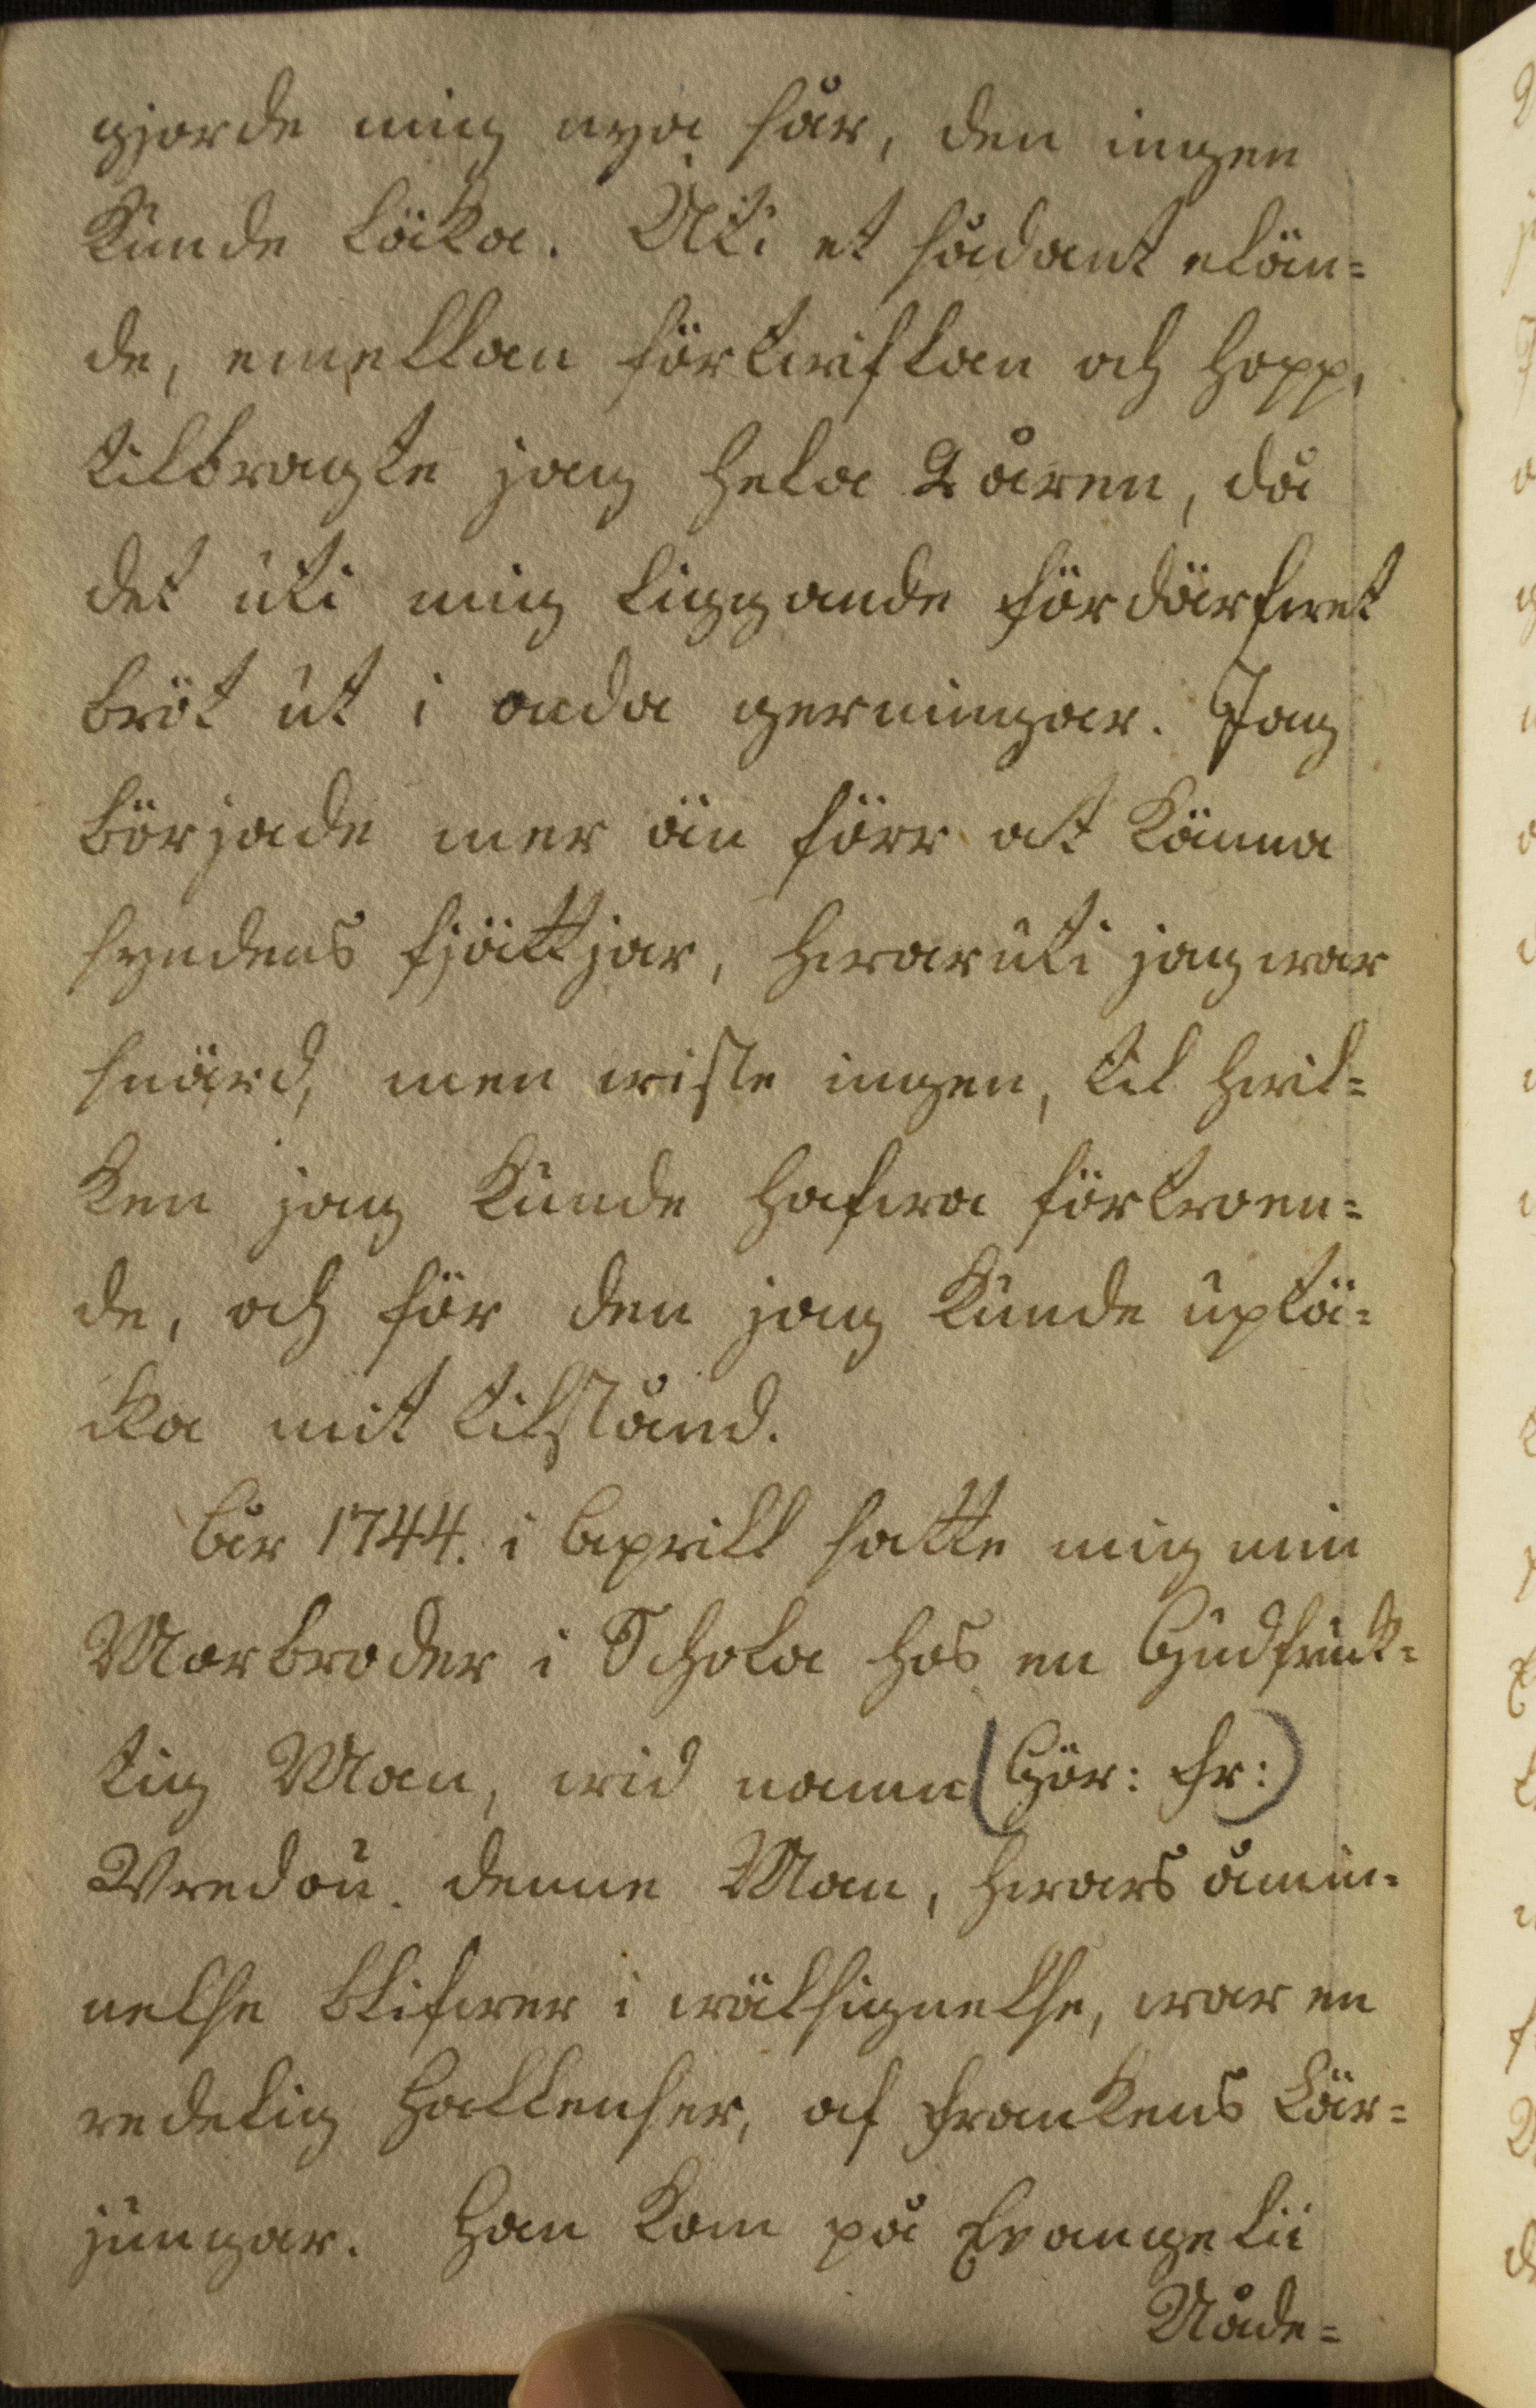 gjorde mig nya sår, den ingen
kunde läka. Uti et sådant elän=
de, emellan förtwiflan och hopp,
tilbragte jag hela 2 åren, då
det uti mig liggande fördärfwet
bröt ut i onda gerningar. Jag
började mer än förr at känna
syndens fjättjar, hwaruti jag war
snärd, men wiste ingen, til hwil=
ken jag kunde hafwa förtroen=
de, och för den jag kunde uptä=
cka mit tilstånd.
År 1744. i Aprill satte mig min
Morbroder i Schola hos en Gudfruck=
tig Man, wid namn (Gör: Fr:)
Vredou. denne Man, hwars åmin=
nelse blifwer i wälsignelse, war en
redelig Hallenser, af Frankens Lär=
jungar. Han kom på Evangelii
Nåde=